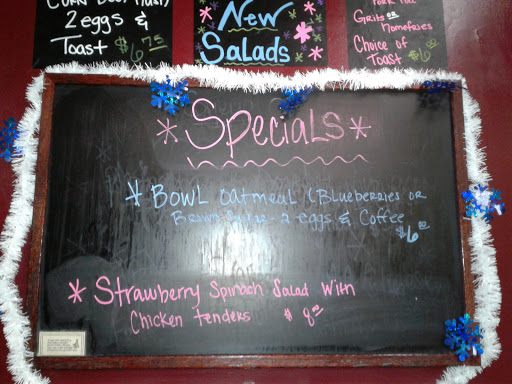 Corn Beef Hash
2 eggs &
Toast $6.75
New
Salads
Pork Roll
Grits or Homefries
Choice of
Toast $6
* Specials *
* Bowl Oatmeal (Blueberries or
Brown Sugar - 2 eggs & Coffee
$6.00
* Strawberry Spinach Salad With
Chicken Tenders $8.00